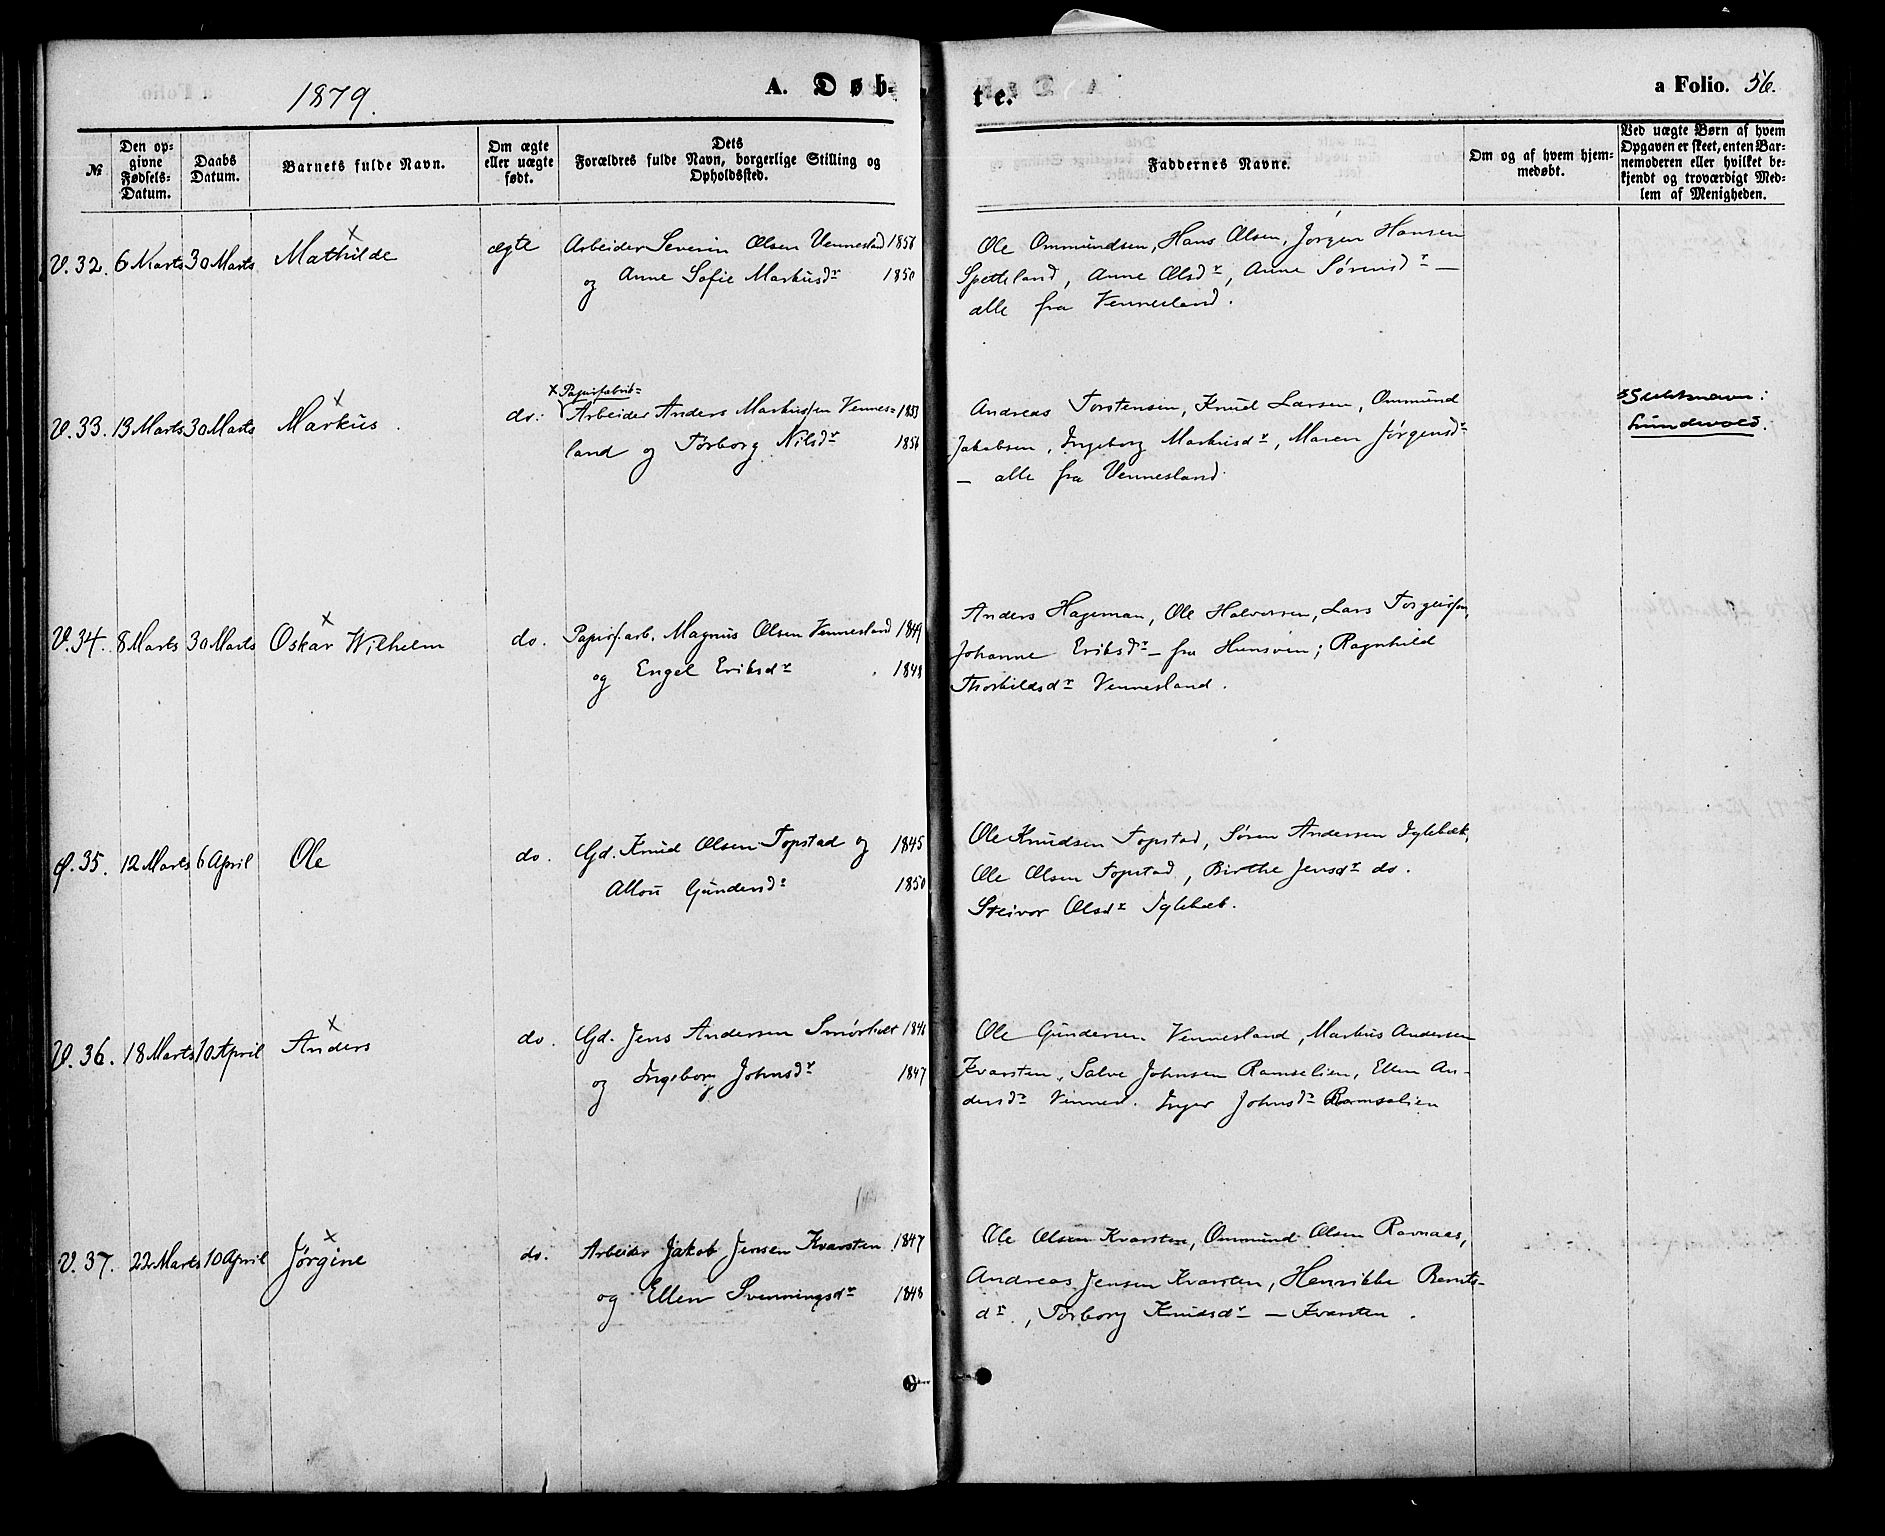 1879.
A. Døb-
te.
a Folio. 56.
№
Den op-
givne
Fødsels-
Datum.
Daabs
Datum.
Barnets fulde Navn.
Om ægte
eller uægte
født.
Dets
Forældres fulde Navn, borgerlige Stilling og
Opholdssted.
Faddernes Navne.
Om og af hvem hjem-
medøbt.
Ved uægte Børn af hvem
Opgaven er skeet, enten Bar-
nemoderen eller hvilket be-
kjendt og troværdigt Med-
lem af Menigheden.
V. 32. 6 Marts 30 Marts Mathilde ægte Arbeider Severin Olsen Vennesland 1856
og Anne Sofie Markusdr 1850
Ole Ommundsen, Hans Olsen, Jørgen Hansen
Spetteland, Anne Olsdr, Anne Sørensdr —
alle fra Vennesland.
x Papirfabrik-
V. 33. 13 Marts 30 Marts Markus. do: Arbeider Anders Markussen Vennes- 1853
land og Torborg Nilsdr 1856
Andreas Torstensen, Knud Larsen, Ommund
Jakobsen, Ingeborg Markusdr, Maren Jørgensdr
— alle fra Vennesland
Slektsnavn:
Lundevold.
V. 34. 8 Marts 30 Marts Oskar Wilhelm do. Papirf.arb. Magnus Olsen Vennesland 1849
og Engel Eriksdr 1848
Anders Hageman, Ole Halvorsen, Lars Torgeirsen,
Johanne Eriksdr — fra Hunsøen; Ragnhild
Thorkildsdr Vennesland.
Ø. 35. 12 Marts 6 April Ole do. Gd. Knud Olsen Topstad og 1845
Allou Gundersdr 1850
Ole Knudsen Topstad, Søren Andersen Iglebæk,
Ole Olsen Topstad, Birthe Jensdr do.
Steivor Olsdr Iglebæk.
V. 36. 18 Marts 10 April Anders do. Gd. Jens Andersen Smørholt 1846
og Ingeborg Johnsdr 1847
Ole Gundersen Vennesland, Markus Andersen
Kvarsten, Salve Johnsen Ramselien, Ellen An-
dersdr Vennesl. Inger Johnsdr Ramselien
V. 37. 22 Marts 10 April Jørgine do. Arbeider Jakob Jensen Kvarsten 1847
og Ellen Svenningsdr 1848
Ole Olsen Kvarsten, Ommund Olsen Ravnaas,
Andreas Jensen Kvarsten, Henrikke Bernts-
dr., Torborg Knudsdr — Kvarsten.